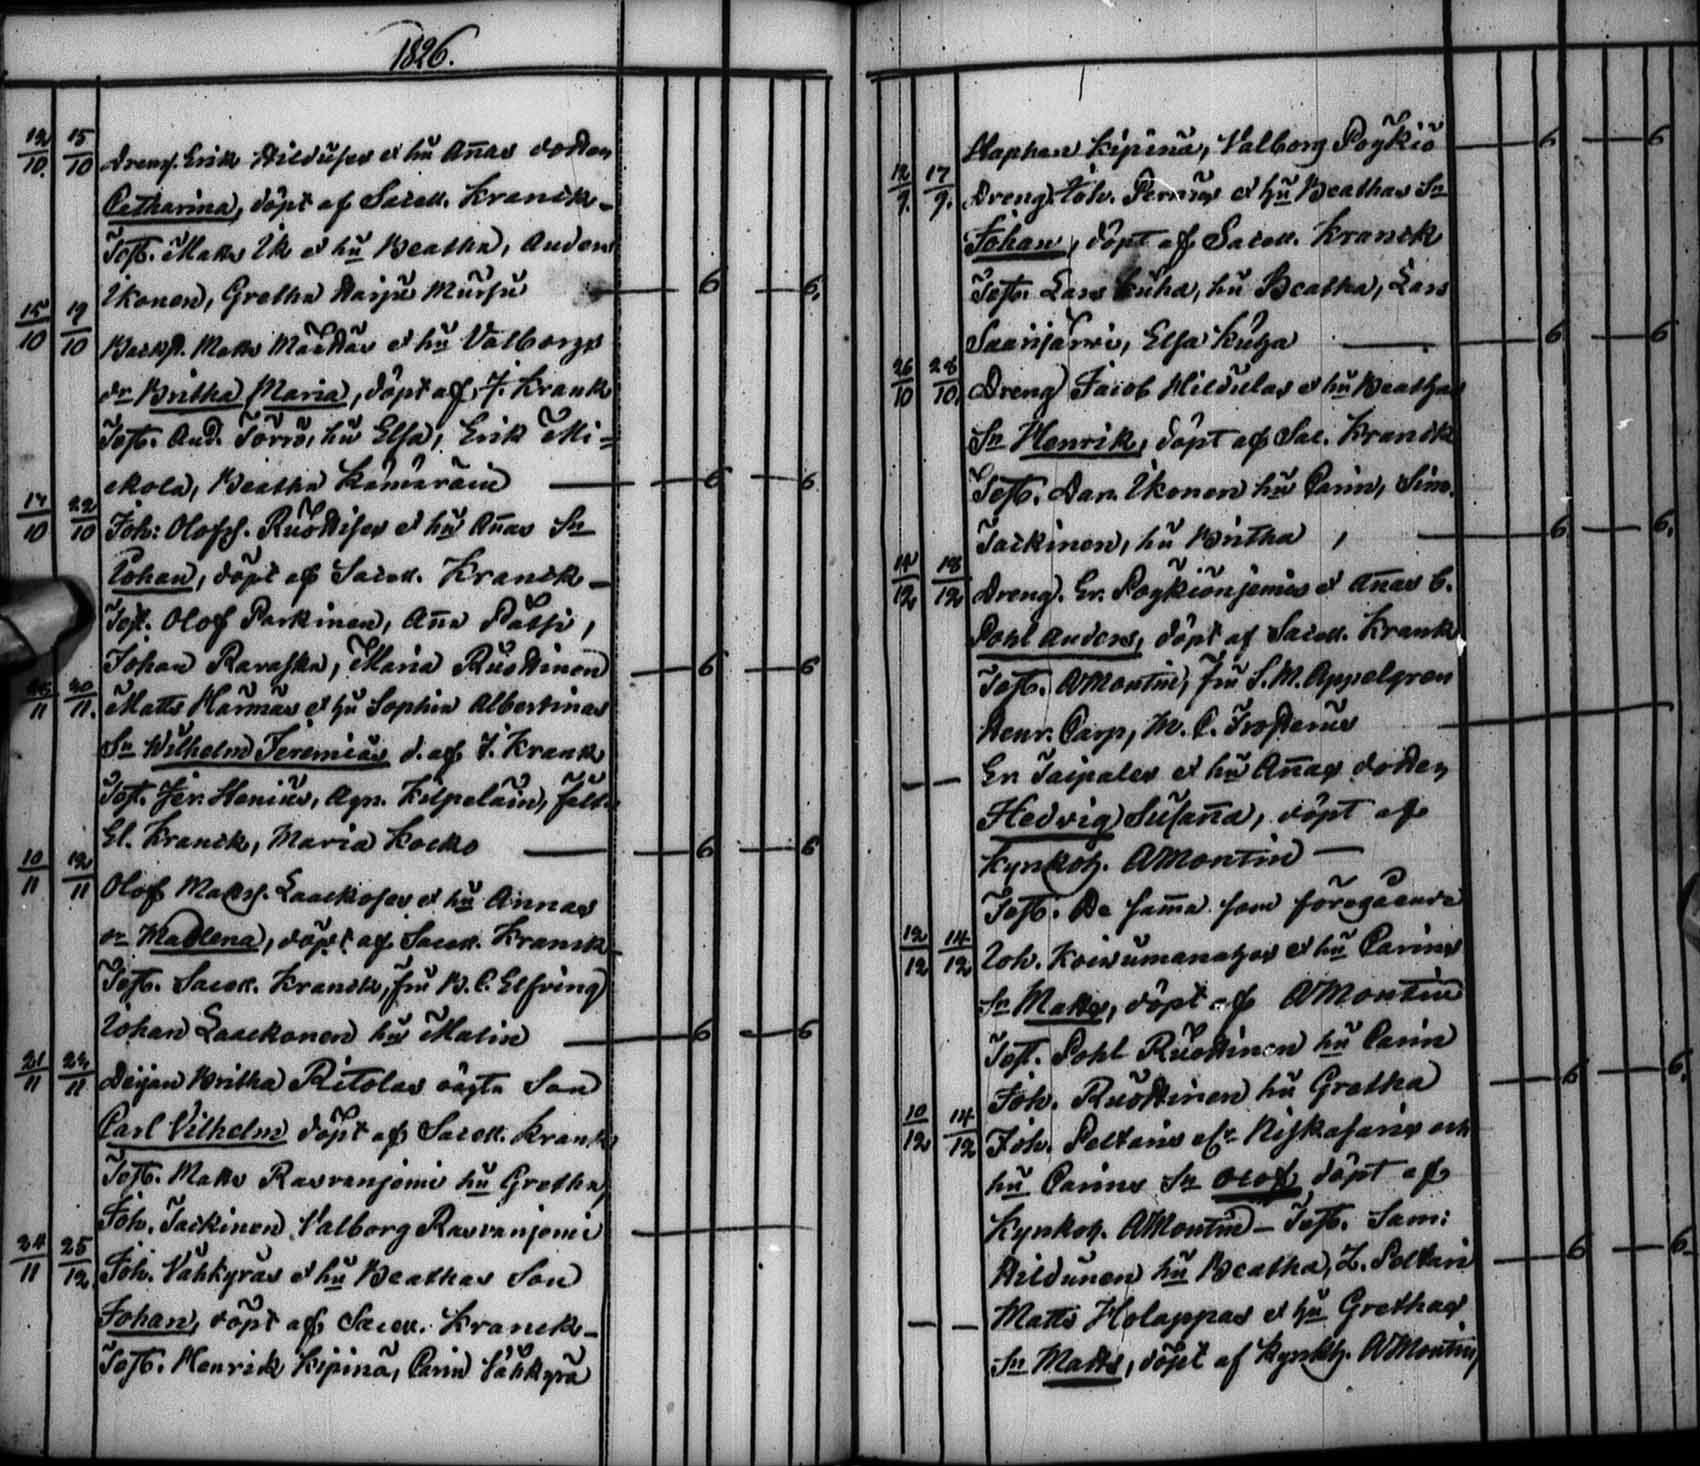 1826.
12/10. 15/10 Dreng. Erik Hilduses o hu Añas dotter
Catharina, döpt af Sacell. Kranck –
Test. Matts Ik o hu Beatha, Anders
Ikonen, Gretha Mursu — 6 — 6.
15/10 19/10 Backst. Matts Määttäs o hu Valborgs
dr Britha Maria, döpt af J. Krank
Test. And. Törrö, hu Elsa, Erik Mi=
ckola, Beatha Kämäräin — 6 — 6
17/10 22/10 Joh: Olofss. Ruottises o hu Añas Sn
Johan, döpt af Sacell. Kranck –
Test. Olof Parkinen, Aña Pätsi,
Johan Ravaska, Maria Ruottinen — 6 — 6
11 20/11. Matts Härmäs o hu Sophia Albertinas
Sn Wilhelm Jeremias d. af J. Krank
Test. Jer. Henius, Agn. Kilpeläin,
El. Kranck, Maria Kocko — 6 — 6
10/11 12/11 Olof Matss. Laackoses o hu Annas
dr Madlena, döpt af Sacell. Kranck
Test. Sacell. Kranck, fru B. C. Elfving
Johan Laackonen hu Malin — 6 — 6
21/11 24/11 Deijan Britha Ritolas oägta Son
Carl Vilhelm döpt af Sacell. Krank
Test. Matts Rasvanjemi hu Gretha,
Joh. Tackinen Valborg Rasvanjemi —
24/11 25/12. Joh. Vähkyräs o hu Beathas Son
Johan, döpt af Sacell. Kranck –
Test. Henrik Kipinä, Carin Vähkyrä
Staphan Kipinä, Valborg Pöykiö — 6 — 6
12/9. 17/9. Dreng. Joh. o hu Beathas Sn
Johan, döpt af Sacell. Kranck
Test. Lars Kuha, hu Beatha, Lars
Saarijärvi, Elsa Kuha — 6 — 6
26/10 28/10. Dreng Jacob Hildulas o hu Beathas
Sn Henrik, döpt af Sac. Kranck
Test. Dan. Ikonen hu Carin, Simo.
Tackinen, hu Britha, — 6 — 6.
14/12 18/12 Dreng. Er. Pöykiönjemis o Añas b.
Pohl Anders, döpt af Sacell. Krank
Test. AMontin, fru S. M. Appelgren
Henr. Carp, M. C. Frosterus —
— — Er. Taipales o hu Añas dotter
Hedvig Susaña, döpt af
Kyrckoh. AMontin —
Test. De sama som föregående
12/12 14/12 Joh. Koivumanahas o hu Carins
Sn Matts, döpt af AMontin
Test. Pohl Ruottinen hu Carin
Joh. Ruottinen hu Gretha — 6 — 6.
10/12 14/12 Joh. Peltaris elr Niskasaris och
hu Carins Sn Olof döpt af
Kyrkoh. AMontin – Test. Sam:
Hildunen hu Beatha, Z. Peltari — 6 — 6
— — Matts Holappas o hu Grethas
Sn Matts, döpt af Kyrkh. AMontin,